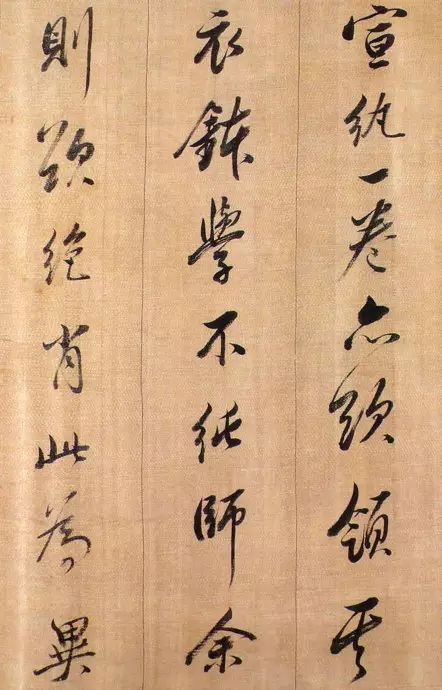 宣紈一卷亦頗領其
衣鉢學不純師余
則頗絕肖此為異